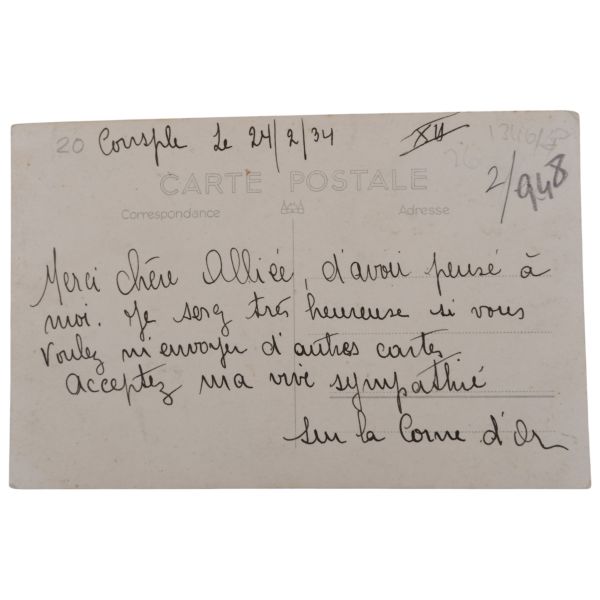 20 Consple Le 24/2/34 XII 1346/
26
2/948
CARTE POSTALE
Correspondance Adresse
Merci chère Alliée, d'avoir pensé à
moi. Je serez très heureuse si vous
voulez m'envoyer d'autres cartes
Acceptez ma vive sympathié
sur la Corne d'Or